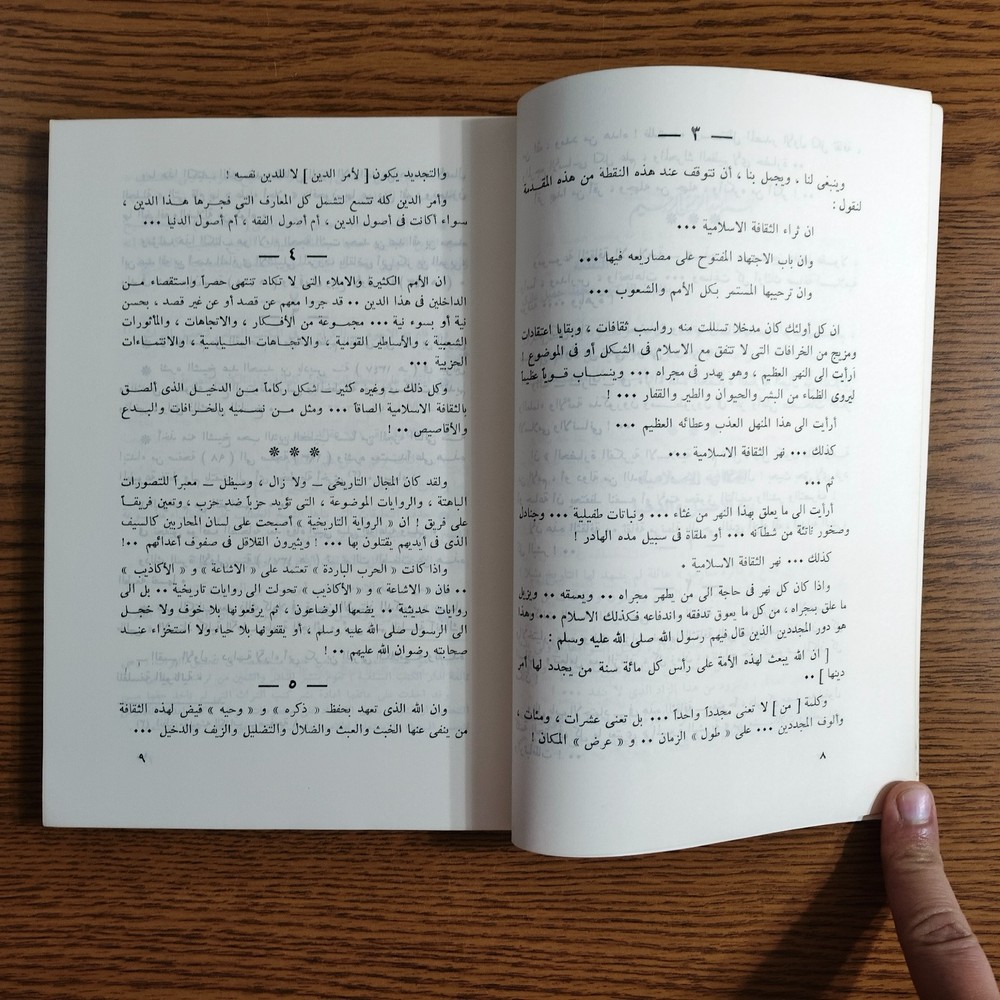 — ٣ —
وينبغى لنا ، ويجمل بنا ، أن نتوقف عند هذه النقطة من هذه المقدمة
لنقول :
ان ثراء الثقافة الاسلامية ...
وان باب الاجتهاد المفتوح على مصاريعه فيها ...
وان ترحيبها المستمر بكل الأمم والشعوب ...
ان كل أولئك كان مدخلا تسللت منه رواسب ثقافات ، وبقايا اعتقادات
ومزيج من الخرافات التى لا تتفق مع الاسلام فى الشكل أو فى الموضوع !
أرأيت الى النهر العظيم ، وهو يهدر فى مجراه ... وينساب قوياً عظيماً
ليروى الظماء من البشر والحيوان والطير والقفار ... !
أرأيت الى هذا المنهل العذب وعطائه العظيم ...
كذلك ... نهر الثقافة الاسلامية ...
ثم ...
أرأيت الى ما يعلق بهذا النهر من غثاء ... ونباتات طفيلية ... وجنادل
وصخور ناتئة من شطآنه ... أو ملقاة فى سبيل مده الهادر !
كذلك ... نهر الثقافة الاسلامية .
واذا كان كل نهر فى حاجة الى من يطهر مجراه .. ويعمقه .. ويزيل
ما علق بمجراه ، من كل ما يعوق تدفقه واندفاعه فكذلك الاسلام ... وهذا
هو دور المجددين الذين قال فيهم رسول الله صلى الله عليه وسلم :
[ ان الله يبعث لهذه الأمة على رأس كل مائة سنة من يجدد لها أمر
دينها ] ..
وكلمة [ من ] لا تعنى مجدداً واحداً ... بل تعنى عشرات ، ومئات ،
وألوف المجددين ... على « طول » الزمان .. و « عرض » المكان !
٨
والتجديد يكون [ لأمر الدين ] لا للدين نفسه !
وأمر الدين كله تتسع لتشمل كل المعارف التى فجرها هذا الدين ،
سواء أكانت فى أصول الدين ، أم أصول الفقه ، أم أصول الدنيا ...
— ٤ —
ان الأمم الكثيرة والاملاء التى لا تكاد تنتهى حصراً واستقصاء من
الداخلين فى هذا الدين .. قد جروا معهم عن قصد أو عن غير قصد ، بحسن
نية أو بسوء نية ... مجموعة من الأفكار ، والاتجاهات ، والمأثورات
الشعبية ، والأساطير القومية ، والاتجاهات السياسية ، والانتماءات
الحزبية ...
وكل ذلك — وغيره كثير — شكل ركاماً من الدخيل الذى ألصق
بالثقافة الاسلامية الصاقاً ... ومثل من نسميه بالخرافات والبدع
والأقاصيص .. !
* * *
ولقد كان المجال التاريخى — ولا زال ، وسيظل — معبراً للتصورات
الباهتة ، والروايات الموضوعة ، التى تؤيد حزباً ضد حزب ، وتعين فريقاً
على فريق ! ان « الرواية التاريخية » أصبحت على لسان المحاربين كالسيف
الذى فى أيديهم يقتلون بها ... ! ويثيرون القلاقل فى صفوف أعدائهم ..!
واذا كانت « الحرب الباردة » تعتمد على « الاشاعة » و « الأكاذيب »
.. فان « الاشاعة » و « الأكاذيب » تحولت الى روايات تاريخية .. بل الى
روايات حديثية .. يضعها الوضاعون ، ثم يرفعونها بلا خوف ولا خجل
الى الرسول صلى الله عليه وسلم ، أو يقفونها بلا حياء ولا استخزاء عند
صحابته رضوان الله عليهم ..!
— ٥ —
وان الله الذى تعهد بحفظ « ذكره » و « وحيه » قيض لهذه الثقافة
من ينفى عنها الخبث والعبث والضلال والتضليل والزيف والدخيل ...
٩